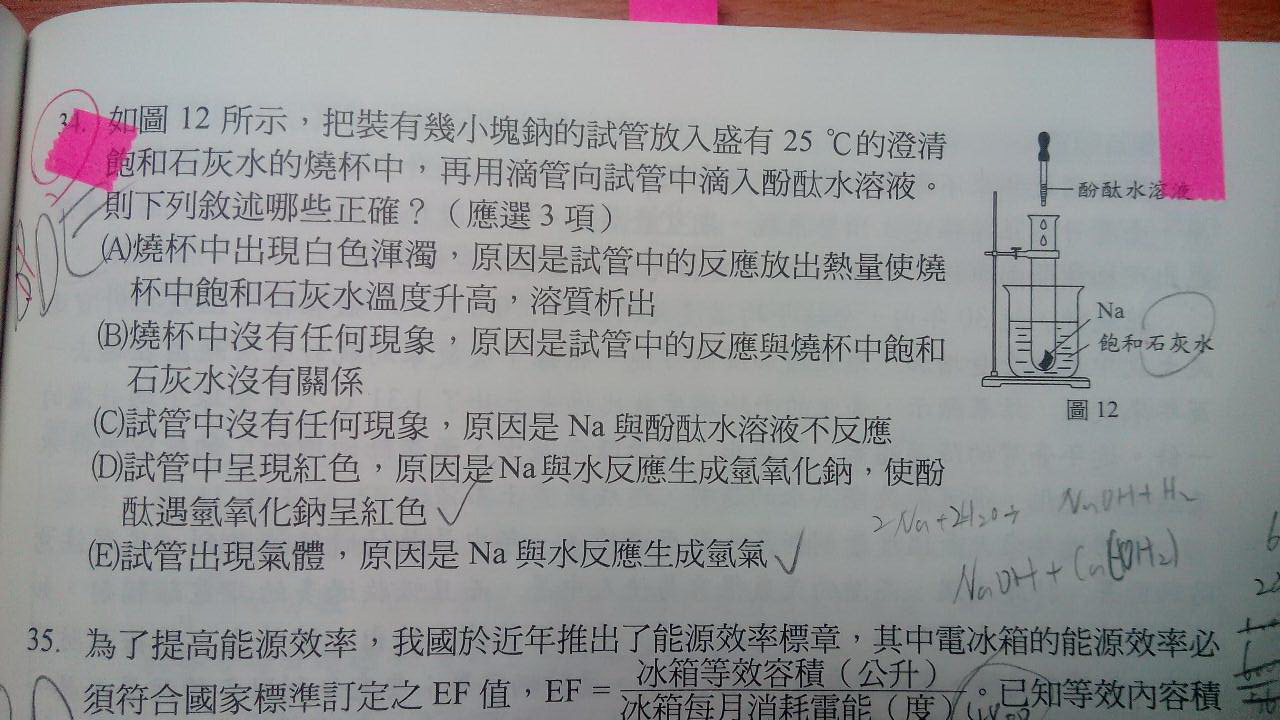 34. 如圖 12 所示，把裝有幾小塊鈉的試管放入盛有 25 ℃的澄清
飽和石灰水的燒杯中，再用滴管向試管中滴入酚酞水溶液。
則下列敘述哪些正確？（應選 3 項）
(A)燒杯中出現白色渾濁，原因是試管中的反應放出熱量使燒
杯中飽和石灰水溫度升高，溶質析出
(B)燒杯中沒有任何現象，原因是試管中的反應與燒杯中飽和
石灰水沒有關係
(C)試管中沒有任何現象，原因是 Na 與酚酞水溶液不反應
(D)試管中呈現紅色，原因是 Na 與水反應生成氫氧化鈉，使酚
酞遇氫氧化鈉呈紅色
(E)試管出現氣體，原因是 Na 與水反應生成氫氣
酚酞水溶液
Na
飽和石灰水
圖 12
2Na+2H2O→ NaOH+H2
NaOH + Ca(OH2)
35. 為了提高能源效率，我國於近年推出了能源效率標章，其中電冰箱的能源效率必
須符合國家標準訂定之 EF 值，EF = 冰箱等效容積（公升）
冰箱每月消耗電能（度）
。已知等效內容積